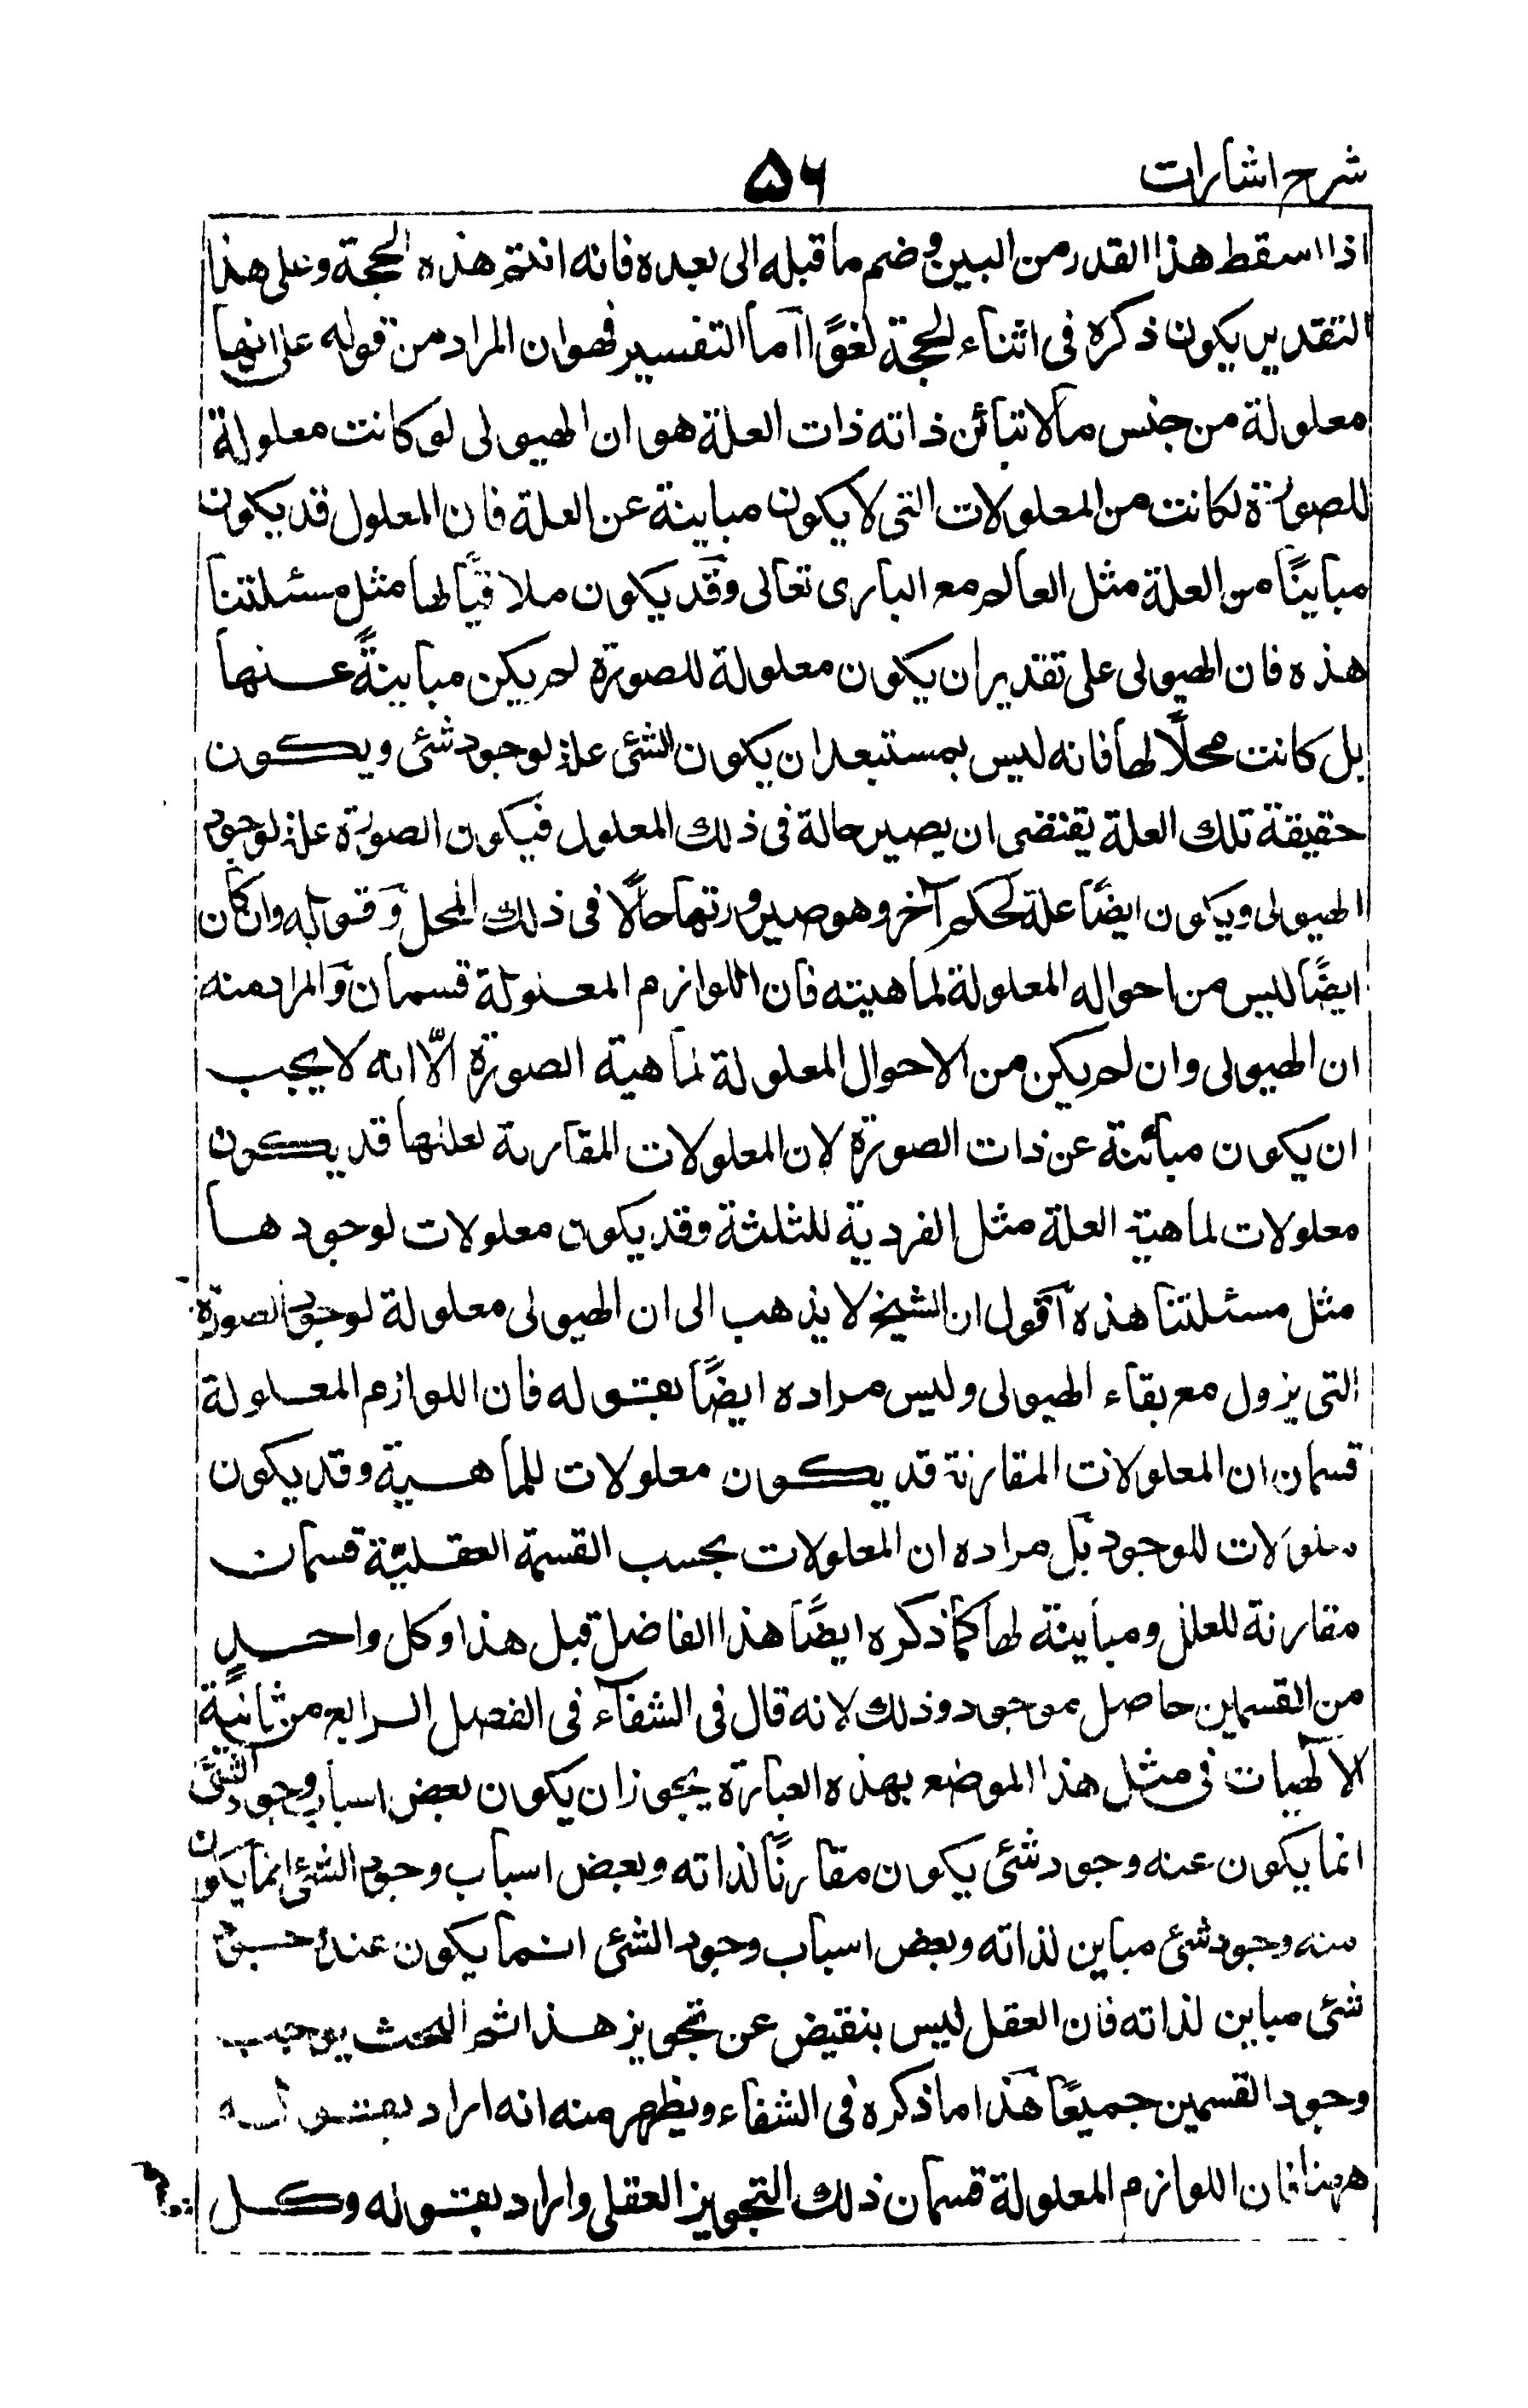 شرح اشارات ۵۶
اذا اسقط هذا القدر من البين وضم ما قبله الى بعده فانه انتم هذه الحجة وعلى هذا
التقدير يكون ذكره فى اثناء الحجة لغوًا آما التفسير فهو ان المراد من قوله على انها
معلولة من جنس مالا تبائن ذاته ذات العلة هو ان الهيولى لو كانت معلولة
للصورة لكانت من المعلولات التى لا يكون مباينة عن العلة فان المعلول قد يكون
مباينًا من العلة مثل العالم مع البارى تعالى وقد يكون ملاقيًا لها مثل مسئلتنا
هذه فان الهيولى على تقدير ان يكون معلولة للصورة لم يكن مباينةً عنها
بل كانت محلًا لها فانه ليس بمستبعد ان يكون الشئ علة لوجود شئ ويكون
حقيقة تلك العلة يقتضى ان يصير حالة فى ذلك المعلول فيكون الصورة علة لوجود
الهيولى ويكون ايضًا علة لحكم آخر وهو صيرورتها حالًا فى ذلك المحل وقوله وان كان
ايضًا ليس من احواله المعلولة لماهيته فان اللوازم المعلولة قسمان والمراد منه
ان الهيولى وان لم يكن من الاحوال المعلولة لماهية الصورة الّا انه لا يجب
ان يكون مبائنة عن ذات الصورة لان المعلولات المقارنة لعلتها قد يكون
معلولات لماهية العلة مثل الفردية للثلثة وقد يكون معلولات لوجودها
مثل مسئلتنا هذه آقول ان الشيخ لا يذهب الى ان الهيولى معلولة لوجود الصورة
التى يزول مع بقاء الهيولى وليس مراده ايضًا بقوله فان اللوازم المعلولة
قسمان ان المعلولات المقارنة قد يكون معلولات للماهية وقد يكون
معلولات للوجود بل مراده ان المعلولات بحسب القسمة العقليّة قسمان
مقارنة للعلل ومباينة لها كما ذكره ايضًا هذا الفاضل قبل هذا وكل واحد
من القسمين حاصل موجود وذلك لانه قال فى الشفآء فى الفصل الرابع من ثانية
الالهيات فى مثل هذا الموضع بهذه العبارة يجوز ان يكون بعض اسباب وجود الشئ
انما يكون عنه وجود شئ يكون مقارنًا لذاته وبعض اسباب وجود الشئ انما يكون
منه وجود شئ مباين لذاته وبعض اسباب وجود الشئ انما يكون عنه وجود
شئ مباين لذاته فان العقل ليس بنقيض عن تجويز هذا ثم البحث يوجب
وجود القسمين جميعًا هذا ما ذكره فى الشفاء ويظهر منه انه اراد بقوله
ههنا فان اللوازم المعلولة قسمان ذلك التجويز العقلى واراد بقوله وكل